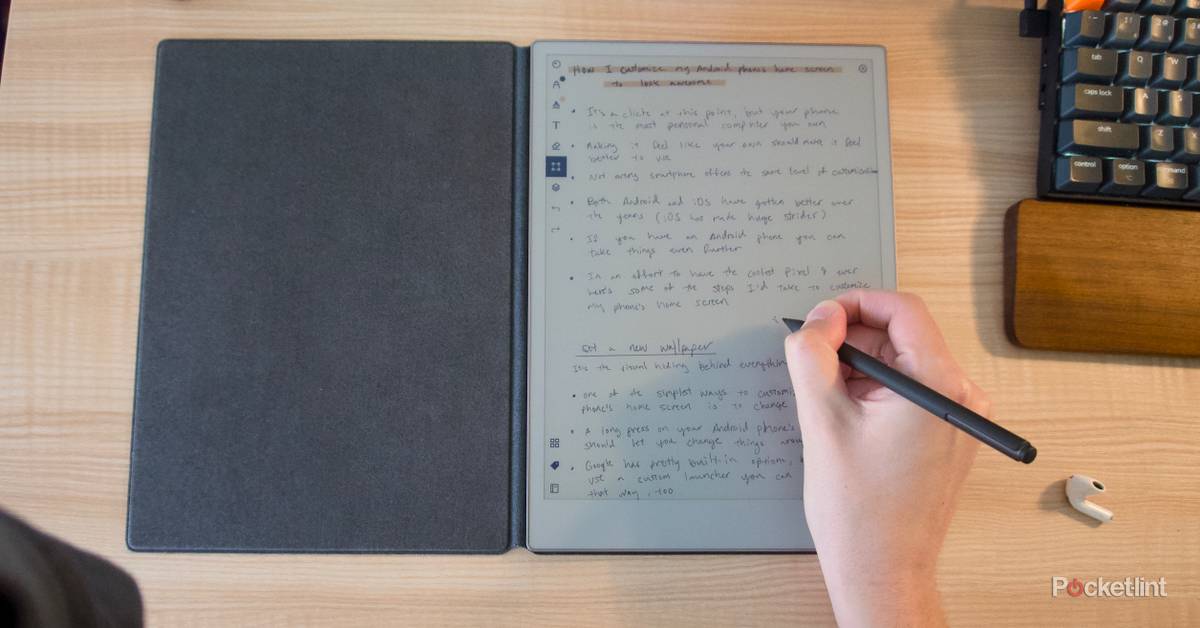 How I customize my Android phone's home screen
to look awesome
• It's a cliche at this point, but your phone
is the most personal computer you own
• Making it feel like your own should make it feel
better to use
• Not every smartphone offers the same level of customization
• Both Android and iOS have gotten better over
the years (iOS has made huge strides)
• If you have an Android phone you can
take things even further
• In an effort to have the coolest Pixel 9 ever
here's some of the steps I'd take to customize
my phone's home screen
Set a new wallpaper
It's the visual hiding behind everythin
• One of the simplest ways to customi
phone's home screen is to change
• A long press on your Android phone's
should let you change things arou
• Google has pretty built-in options,
use a custom launcher you can
that way, too
tab
Q
W
caps lock
A
S
shift
Z
X
control
option
command
Pocketlint